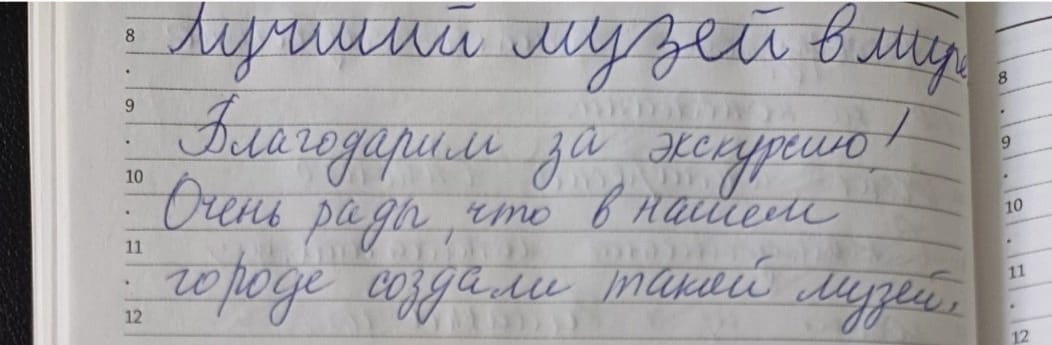 Лучший музей в мире
8
9
Благодарим за экскурсию!
10
Очень рады, что в нашем
11
городе создали такой музей.
12
8
9
10
11
12